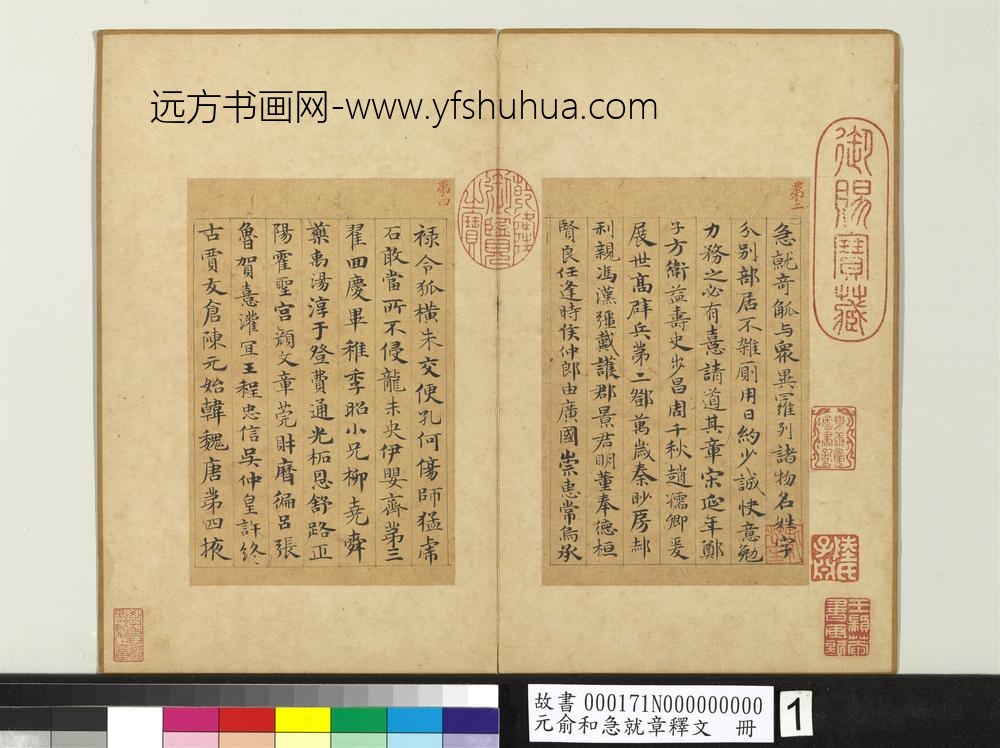 远方书画网-www.yfshuhua.com
御賜寶藏
第二
急就奇觚与衆異羅列諸物名姓字
分别部居不雑厠用日約少誠快意勉
力務之必有憙請道其章宋延年鄭
子方衛益壽史步昌周千秋趙孺卿爰
展世髙辟兵苐二鄧萬嵗秦眇房郝
利親馮漢彊戴護郡景君明董奉德桓
賢良任逢時侯仲郎由廣國崇惠常烏承
第四
禄令狐横朱交便孔何傷師猛虎
石敢當所不侵龍未央伊嬰齊苐三
翟回慶畢稚季昭小兄柳堯舜
藥禹湯淳于登費通光柘恩舒路正
陽霍聖宫顔文章莞財厯徧吕張
魯賀憙灌冝王程忠信吴仲皇許終
古賈友倉陳元始韓魏唐苐四掖
故書 000171N000000000
元俞和急就章釋文 冊
1